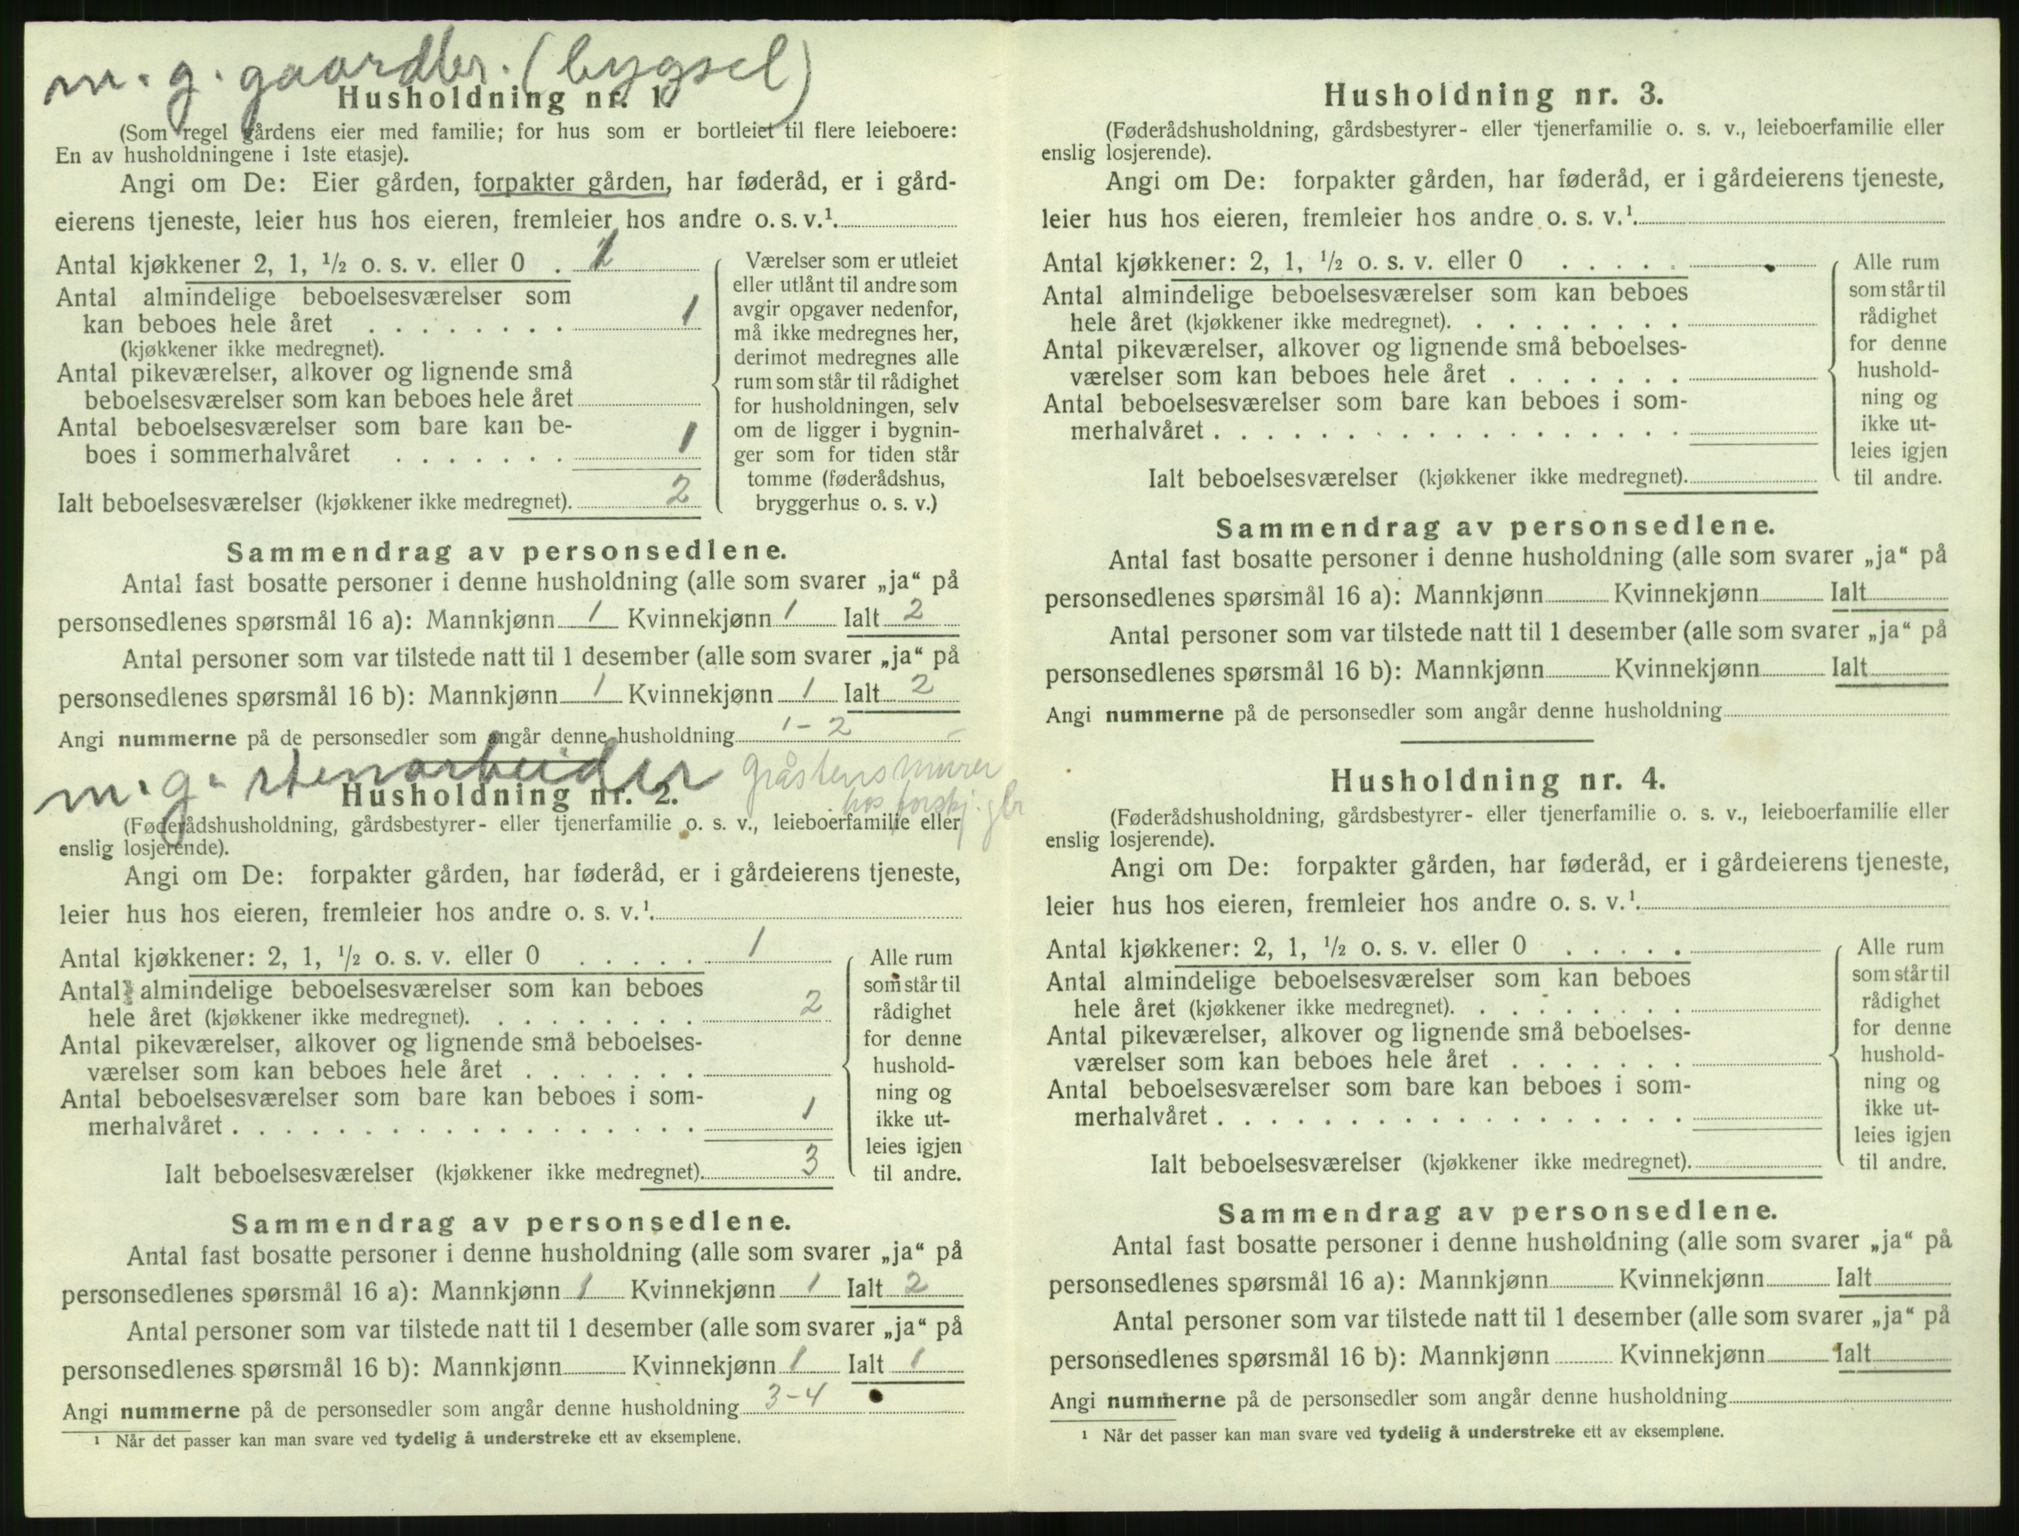 m. g. gaardbr. (bygsel)
Husholdning nr. 1.
(Som regel gårdens eier med familie; for hus som er bortleiet til flere leieboere:
En av husholdningene i 1ste etasje).
Angi om De: Eier gården, forpakter gården, har føderåd, er i gård-
eierens tjeneste, leier hus hos eieren, fremleier hos andre o. s. v.¹.
Antal kjøkkener 2, 1, ½ o. s. v. eller 0 . 1
Antal almindelige beboelsesværelser som
kan beboes hele året . . . . . . . . 1
(kjøkkener ikke medregnet).
Antal pikeværelser, alkover og lignende små
beboelsesværelser som kan beboes hele året
Antal beboelsesværelser som bare kan be-
boes i sommerhalvåret . . . . . . . 1
Ialt beboelsesværelser (kjøkkener ikke medregnet). 2
Værelser som er utleiet
eller utlånt til andre som
avgir opgaver nedenfor,
må ikke medregnes her,
derimot medregnes alle
rum som står til rådighet
for husholdningen, selv
om de ligger i bygnin-
ger som for tiden står
tomme (føderådshus,
bryggerhus o. s. v.)
Sammendrag av personsedlene.
Antal fast bosatte personer i denne husholdning (alle som svarer „ja“ på
personsedlenes spørsmål 16 a): Mannkjønn 1 Kvinnekjønn 1 Ialt 2
Antal personer som var tilstede natt til 1 desember (alle som svarer „ja“ på
personsedlenes spørsmål 16 b): Mannkjønn 1 Kvinnekjønn 1 Ialt 2
Angi nummerne på de personsedler som angår denne husholdning 1-2
m. g. stenarbeider gråstensmurer
Husholdning nr. 2. hos forskj. gbr
(Føderådshusholdning, gårdsbestyrer- eller tjenerfamilie o. s. v., leieboerfamilie eller
enslig losjerende).
Angi om De: forpakter gården, har føderåd, er i gårdeierens tjeneste,
leier hus hos eieren, fremleier hos andre o. s. v.¹.
Antal kjøkkener: 2, 1, ½ o. s. v. eller 0 . . . . . 1
Antal almindelige beboelsesværelser som kan beboes
hele året (kjøkkener ikke medregnet). . . . . . . . . 2
Antal pikeværelser, alkover og lignende små beboelses-
værelser som kan beboes hele året . . . . . . .
Antal beboelsesværelser som bare kan beboes i som-
merhalvåret . . . . . . . . . . . . . . . . . . 1
Ialt beboelsesværelser (kjøkkener ikke medregnet). 3
Alle rum
som står til
rådighet
for denne
hushold-
ning og
ikke ut-
leies igjen
til andre.
Sammendrag av personsedlene.
Antal fast bosatte personer i denne husholdning (alle som svarer „ja“ på
personsedlenes spørsmål 16 a): Mannkjønn 1 Kvinnekjønn 1 Ialt 2
Antal personer som var tilstede natt til 1 desember (alle som svarer „ja“ på
personsedlenes spørsmål 16 b): Mannkjønn Kvinnekjønn 1 Ialt 1
Angi nummerne på de personsedler som angår denne husholdning 3-4
¹ Når det passer kan man svare ved tydelig å understreke ett av eksemplene.
Husholdning nr. 3.
(Føderådshusholdning, gårdsbestyrer- eller tjenerfamilie o. s. v., leieboerfamilie eller
enslig losjerende).
Angi om De: forpakter gården, har føderåd, er i gårdeierens tjeneste,
leier hus hos eieren, fremleier hos andre o. s. v.¹.
Antal kjøkkener: 2, 1, ½ o. s. v. eller 0 . . . . .
Antal almindelige beboelsesværelser som kan beboes
hele året (kjøkkener ikke medregnet). . . . . . . . .
Antal pikeværelser, alkover og lignende små beboelses-
værelser som kan beboes hele året . . . . . . .
Antal beboelsesværelser som bare kan beboes i som-
merhalvåret . . . . . . . . . . . . . . . . . .
Ialt beboelsesværelser (kjøkkener ikke medregnet).
Alle rum
som står til
rådighet
for denne
hushold-
ning og
ikke ut-
leies igjen
til andre.
Sammendrag av personsedlene.
Antal fast bosatte personer i denne husholdning (alle som svarer „ja“ på
personsedlenes spørsmål 16 a): Mannkjønn Kvinnekjønn Ialt
Antal personer som var tilstede natt til 1 desember (alle som svarer „ja“ på
personsedlenes spørsmål 16 b): Mannkjønn Kvinnekjønn Ialt
Angi nummerne på de personsedler som angår denne husholdning
Husholdning nr. 4.
(Føderådshusholdning, gårdsbestyrer- eller tjenerfamilie o. s. v., leieboerfamilie eller
enslig losjerende).
Angi om De: forpakter gården, har føderåd, er i gårdeierens tjeneste,
leier hus hos eieren, fremleier hos andre o. s. v.¹.
Antal kjøkkener: 2, 1, ½ o. s. v. eller 0 . . . . .
Antal almindelige beboelsesværelser som kan beboes
hele året (kjøkkener ikke medregnet). . . . . . . . .
Antal pikeværelser, alkover og lignende små beboelses-
værelser som kan beboes hele året . . . . . . .
Antal beboelsesværelser som bare kan beboes i som-
merhalvåret . . . . . . . . . . . . . . . . . .
Ialt beboelsesværelser (kjøkkener ikke medregnet).
Alle rum
som står til
rådighet
for denne
hushold-
ning og
ikke ut-
leies igjen
til andre.
Sammendrag av personsedlene.
Antal fast bosatte personer i denne husholdning (alle som svarer „ja“ på
personsedlenes spørsmål 16 a): Mannkjønn Kvinnekjønn Ialt
Antal personer som var tilstede natt til 1 desember (alle som svarer „ja“ på
personsedlenes spørsmål 16 b): Mannkjønn Kvinnekjønn Ialt
Angi nummerne på de personsedler som angår denne husholdning
¹ Når det passer kan man svare ved tydelig å understreke ett av eksemplene.